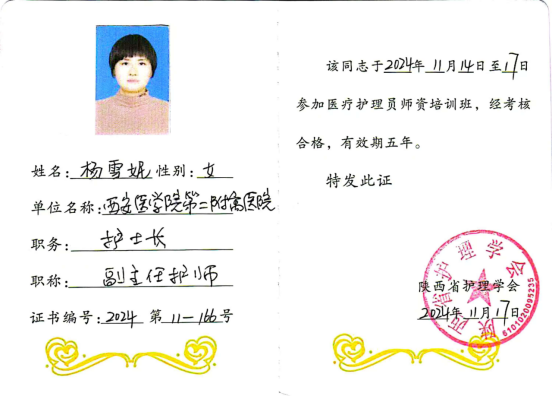 姓名:杨雪妮 性别:女
单位名称:西安医学院第二附属医院
职务: 护士长
职称: 副主任护师
证书编号:2024 第 11-166号
该同志于2024年 11月14日至17日
参加医疗护理员师资培训班,经考核
合格,有效期五年。
特发此证
陕西省护理学会
2024年 11月17日
陕西省护理学会
6101020095235